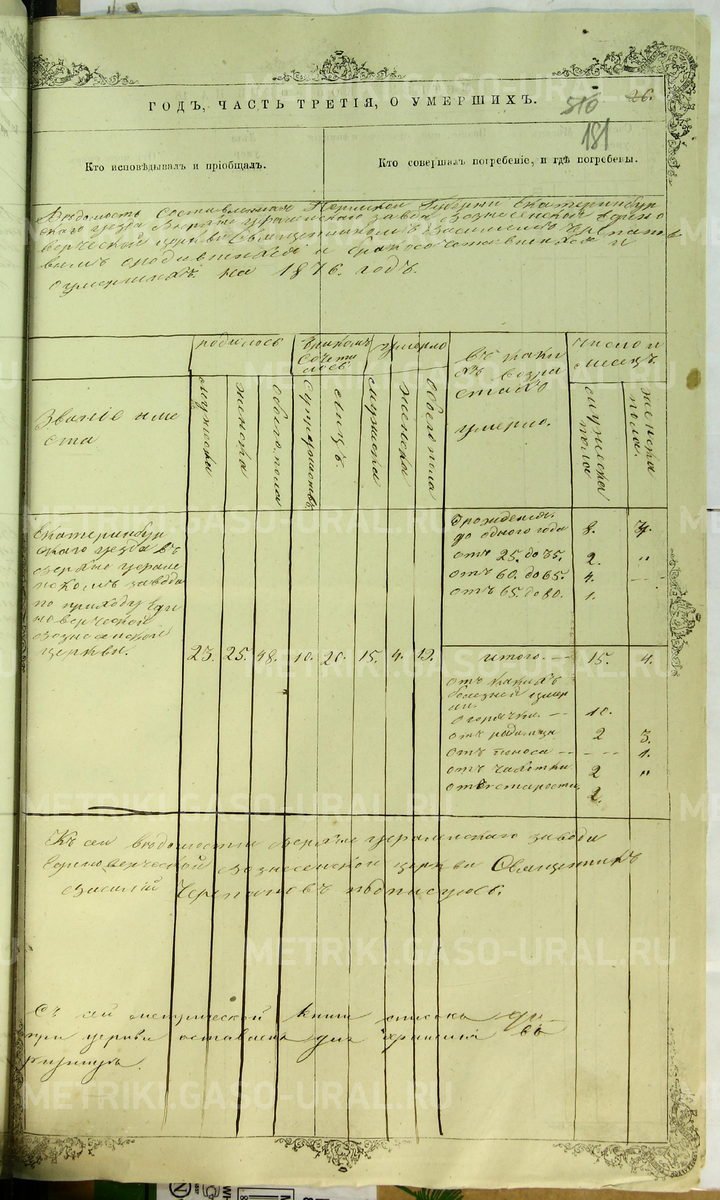 ГОДЪ, ЧАСТЬ ТРЕТІЯ, О УМЕРШИХЪ.
510
26.
181
Кто исповѣдывалъ и пріобщалъ.
Кто совершалъ погребеніе, и гдѣ погребены.
Вѣдомость Составленная Пермской Губерніи Екатеринбур
скаго уезда Верхне уфалейскаго завода Вознесенской Едино
верческой церкви Священникомъ Василіемъ Черепано
вымъ о родившихся и бракосочетавшихся и
о умершихъ на 1876. годъ.
родилось
бракомъ сочета лось
умерло
въ какихъ возрастахъ умерло.
Число и месяцъ.
Званіе и места
мужеска
женска
обоего пола
супружествъ
лицъ.
мужеска
женска
обоего пола
мужеска пола
женска пола.
Екатеринбур
скаго уезда въ
верхне уфале
искомъ заводе
по приходу Еди
новерческой
Вознесенской
церкви.
23. 25. 48. 10. 20. 15. 4. 19.
С рожденія.
до одного года 8. 4.
отъ 25. до 35. 2. "
отъ 60. до 65. 4. -
отъ 65. до 80. 1.
итого. 15. 4.
отъ какихъ
болезней умер
ли.
Горячки. 10.
отъ родимца 2 3.
отъ поноса 1.
отъ чахотки 2 "
отъ старости 2.
Къ сей ведомости Верхне уфалейскаго завода
Единоверческой Вознесенской церкви Священникъ
Василій Черепановъ подписуюсь.
Съ сей метрической книги списокъ
при церкви оставленъ для хранения въ
ризнице.
METRIKI.GASO-URAL.RU